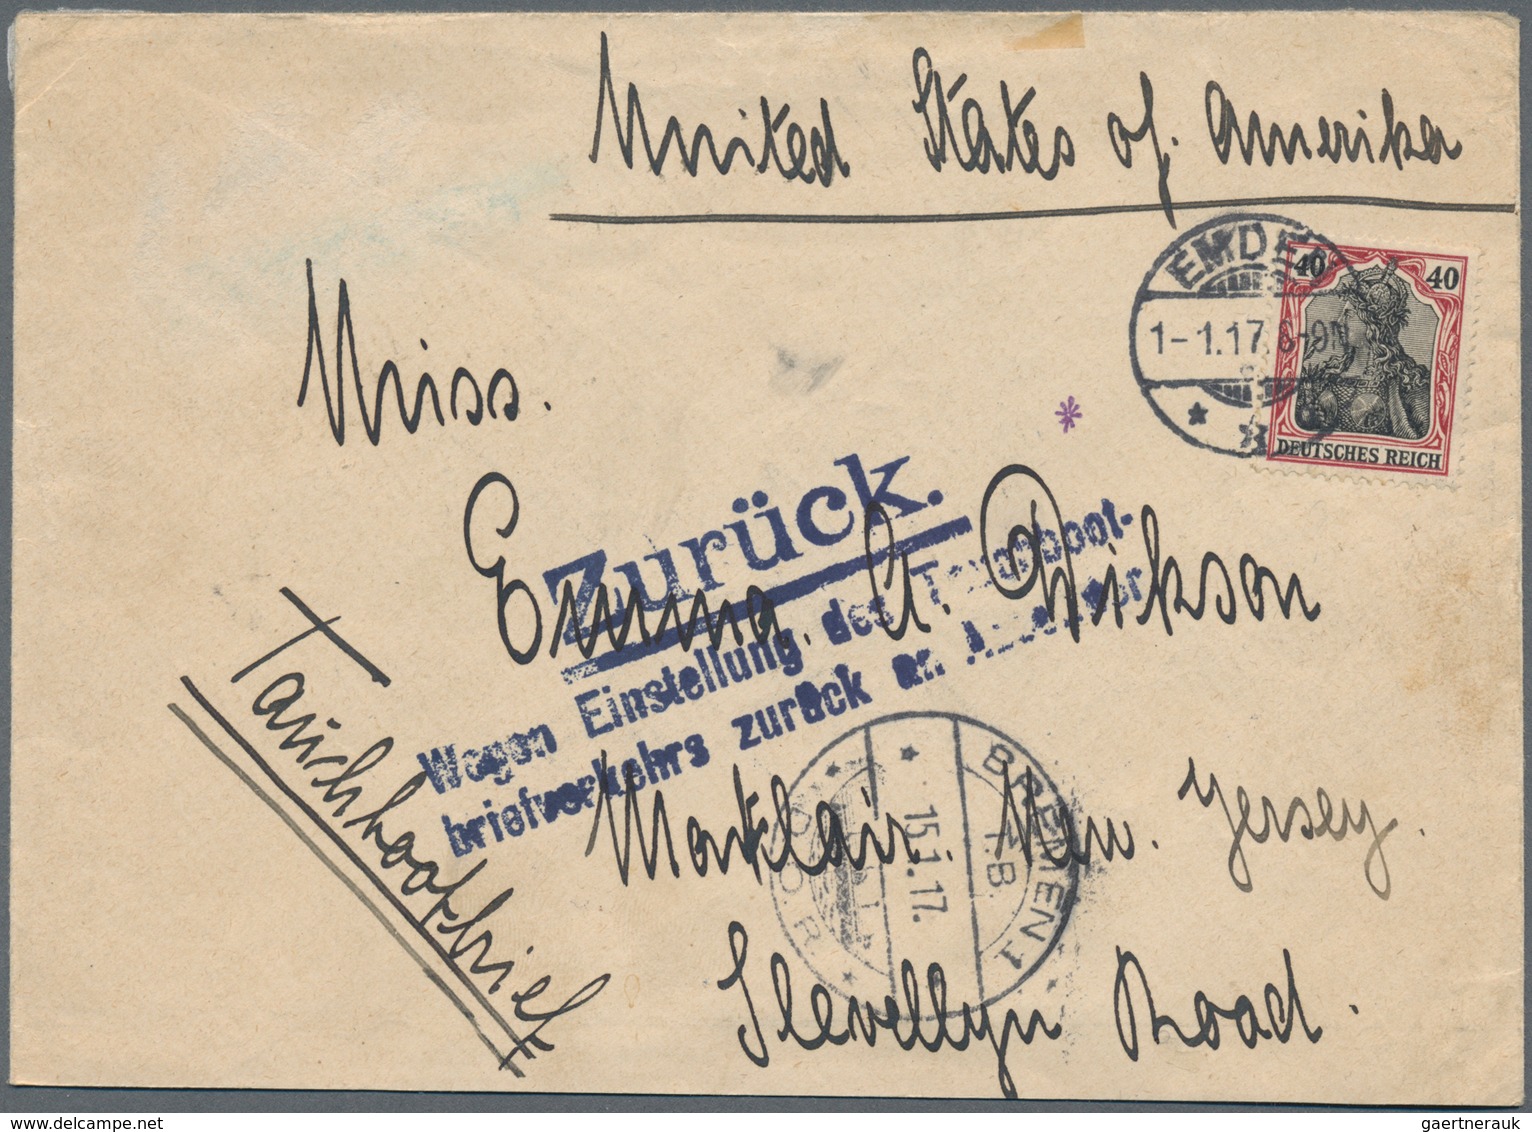 United States of. Amerika
EMDEN
1-1.17. 6-9N
40 40
DEUTSCHES REICH
Miss.
Zurück.
Emma. A. Dikson
Wegen Einstellung des Tauchboot-
briefverkehrs zurück an Absender
Tauchbootbrief
Montklair. New. Yersey.
BREMEN 1
P.B.
15.1.17.
Slevellyn Road.
gaertnerauk